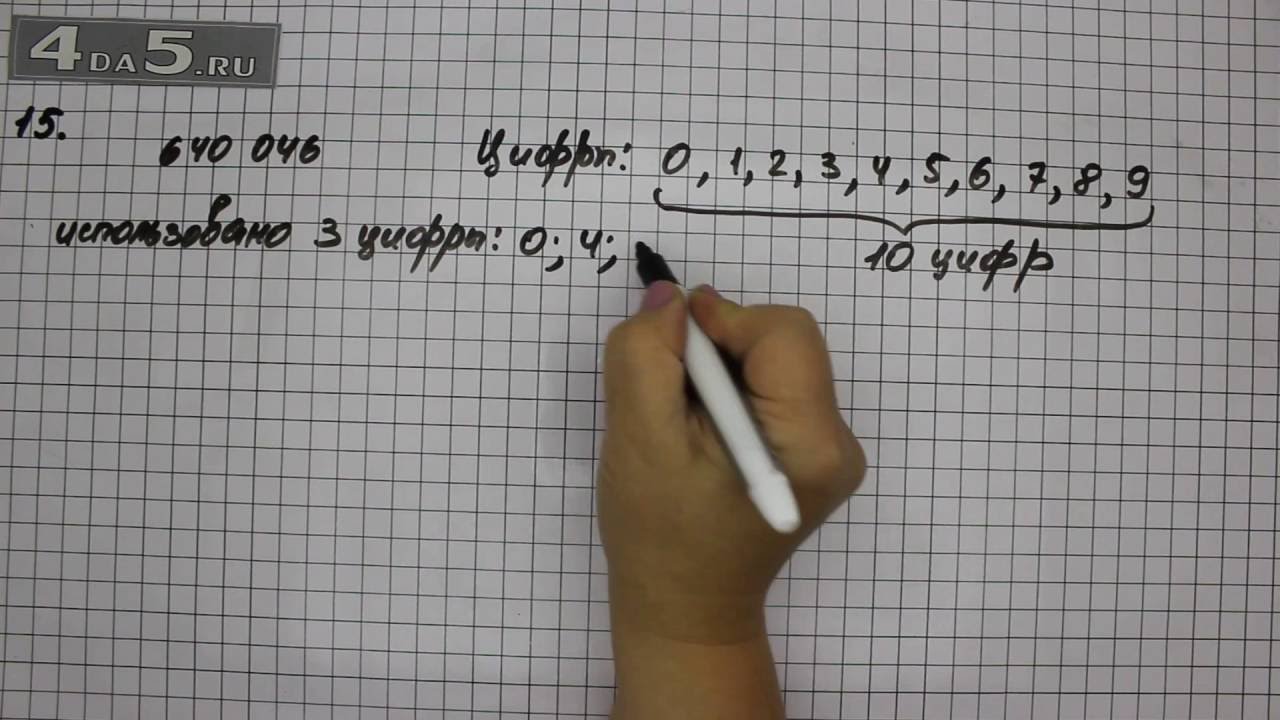 4DA5.RU
15.
640 046
Цифры: 0, 1, 2, 3, 4, 5, 6, 7, 8, 9
10 цифр
использовано 3 цифры: 0; 4;